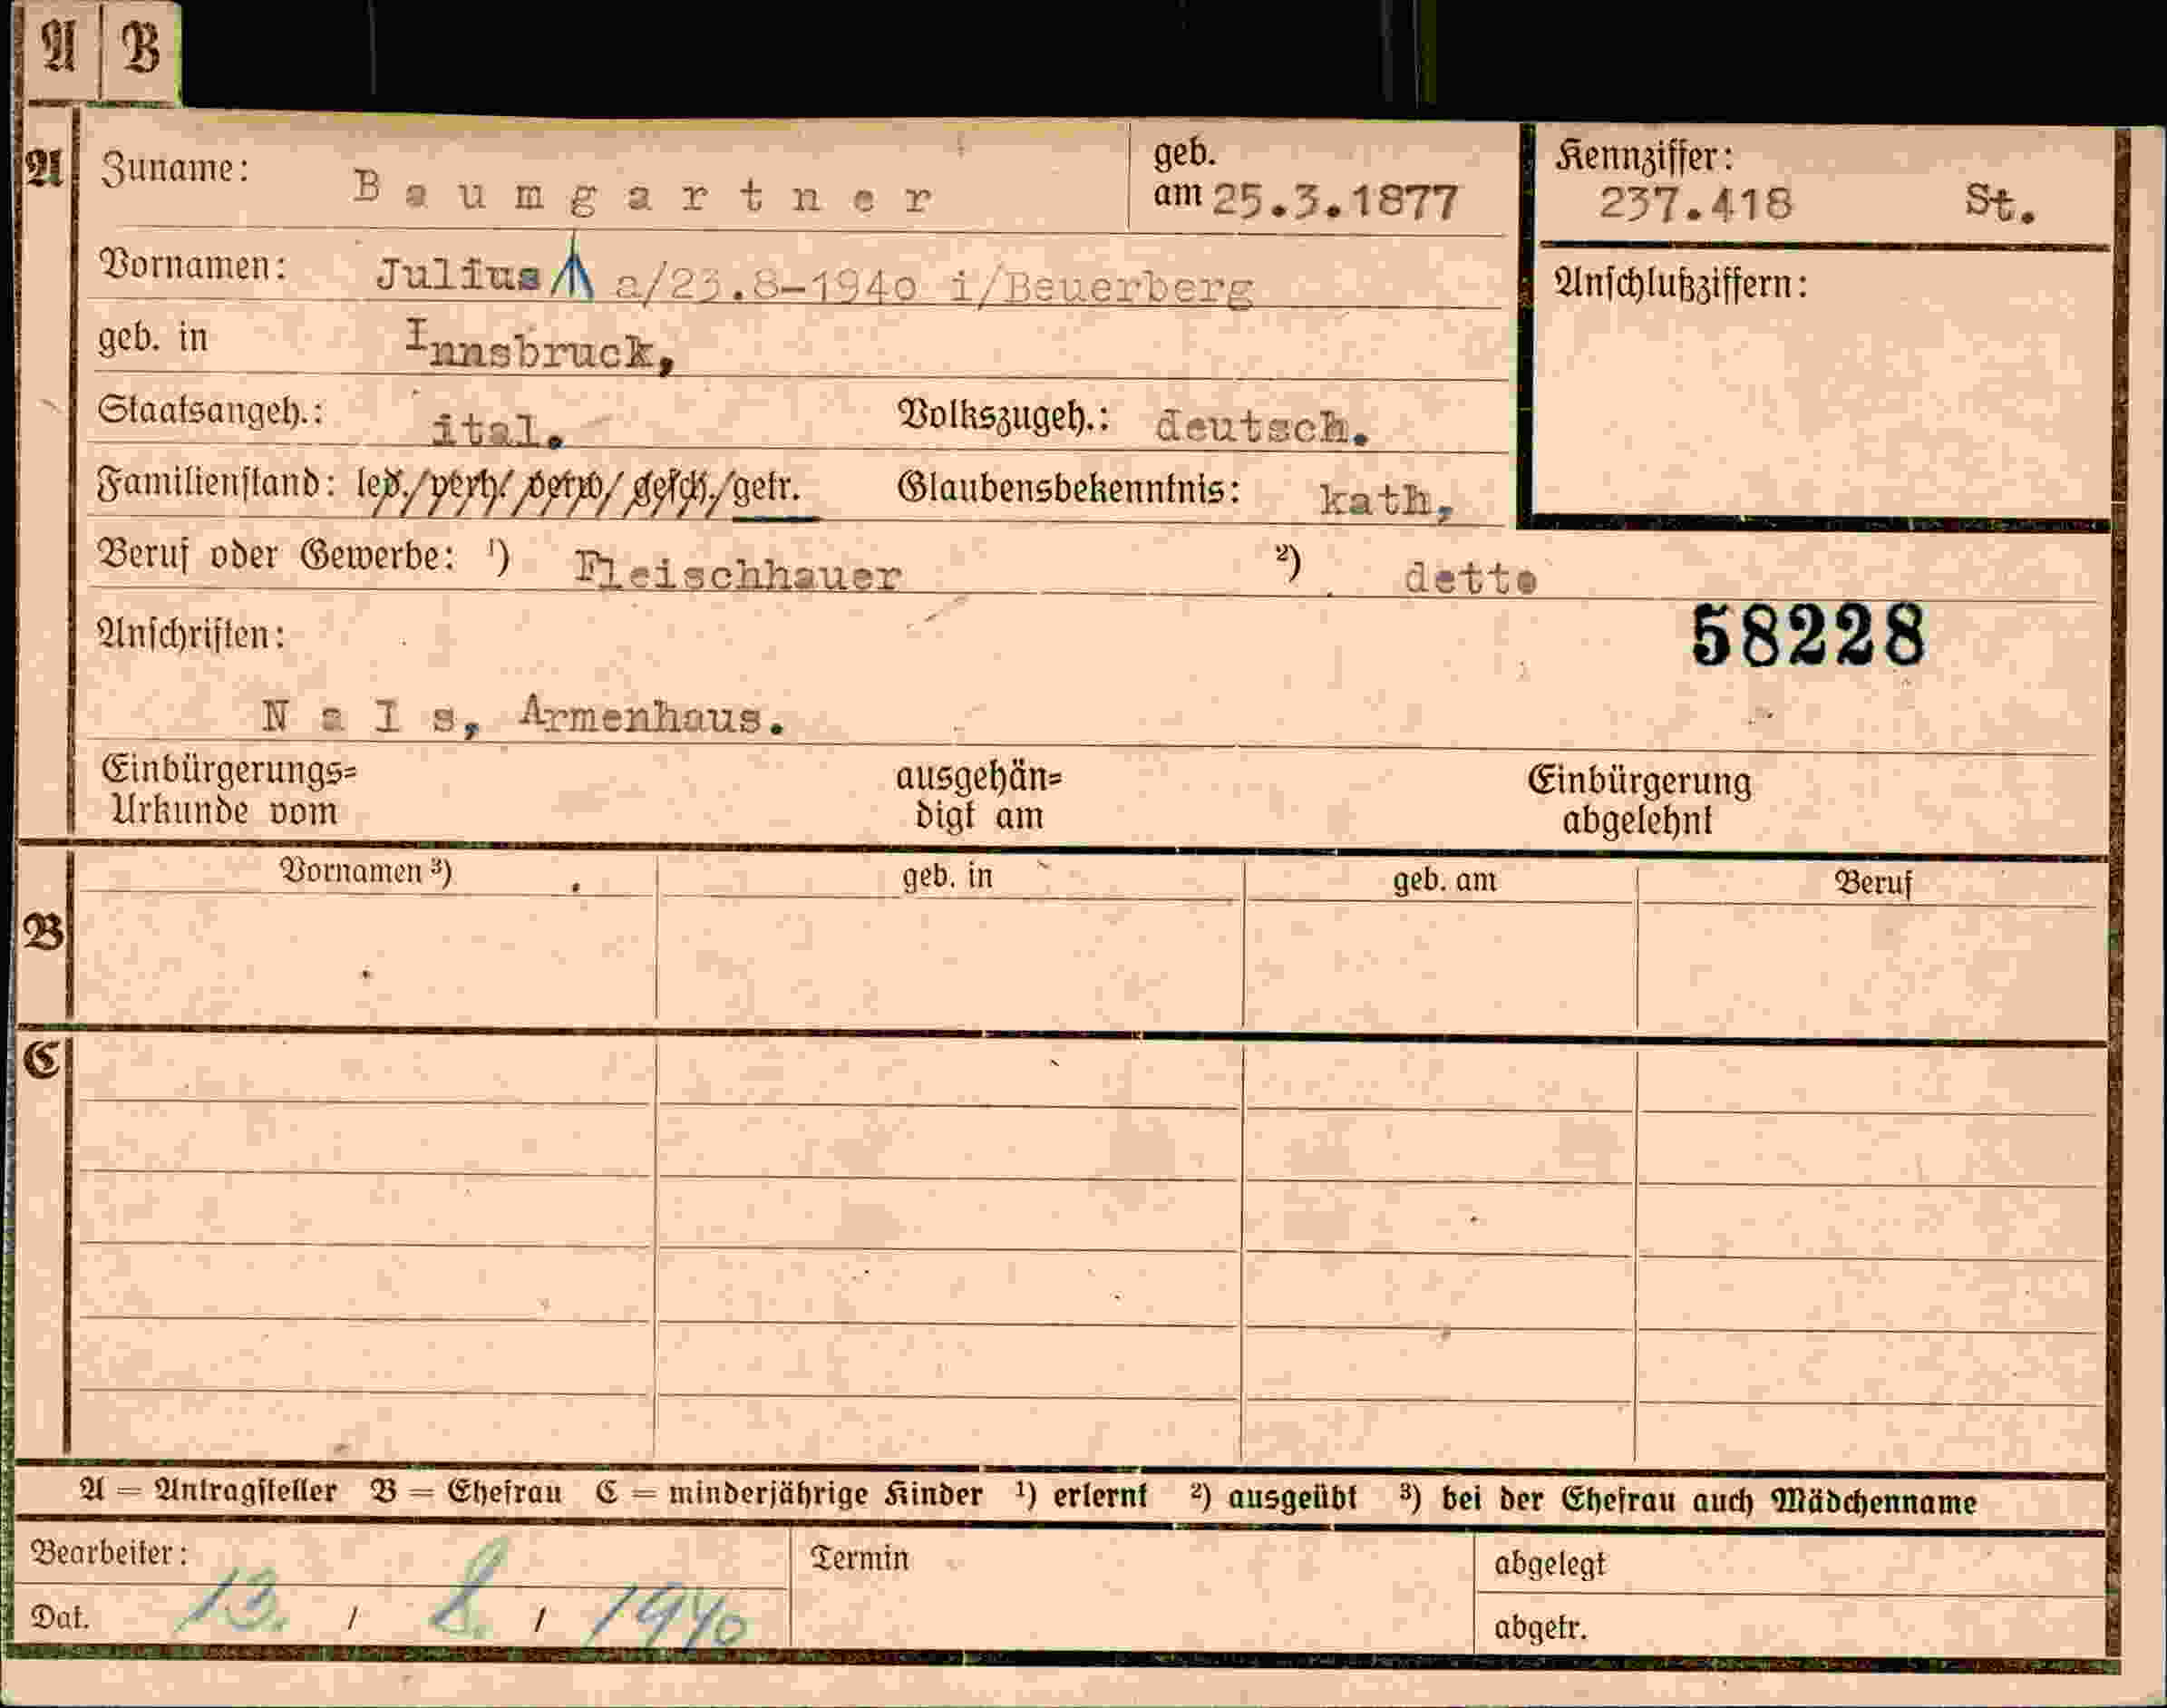 A B
A Zuname: Baumgartner geb. am 25.3.1877 Kennziffer: 237.418 St.
Vornamen: Julius a/23.8-1940 i/Beuerberg Anschlußziffern:
geb. in Innsbruck,
Staatsangeh.: ital. Volkszugeh.: deutsch.
Familienstand: led./verh./verw./gesch./getr. Glaubensbekenntnis: kath,
Beruf oder Gewerbe: 1) Fleischhauer 2) detto
Anschriften: 58228
Nals, Armenhaus.
Einbürgerungs= ausgehän= Einbürgerung
Urkunde vom digt am abgelehnt
Vornamen 3) geb. in geb. am Beruf
B
C
A = Antragsteller B = Ehefrau C = minderjährige Kinder 1) erlernt 2) ausgeübt 3) bei der Ehefrau auch Mädchenname
Bearbeiter: Termin abgelegt
Dat. 13. / 8. / 1940 abgetr.